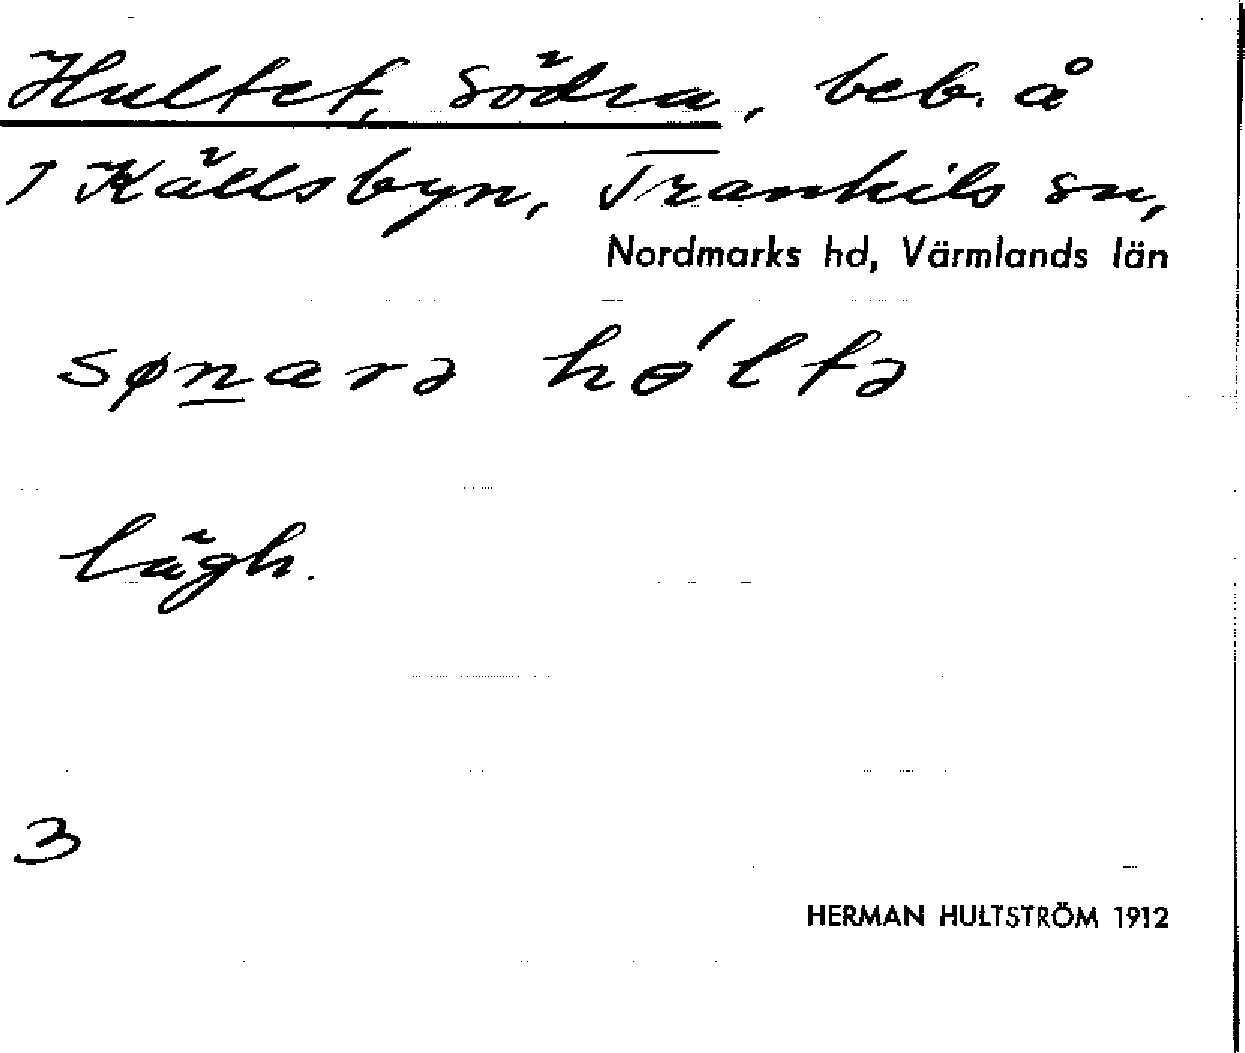 Hultet, Södra, beb. å
1 Källsbyn, Trankils sn,
Nordmarks hd, Värmlands län
søn̲arə hɵ́ltə
lägh.
3
HERMAN HULTSTRÖM 1912